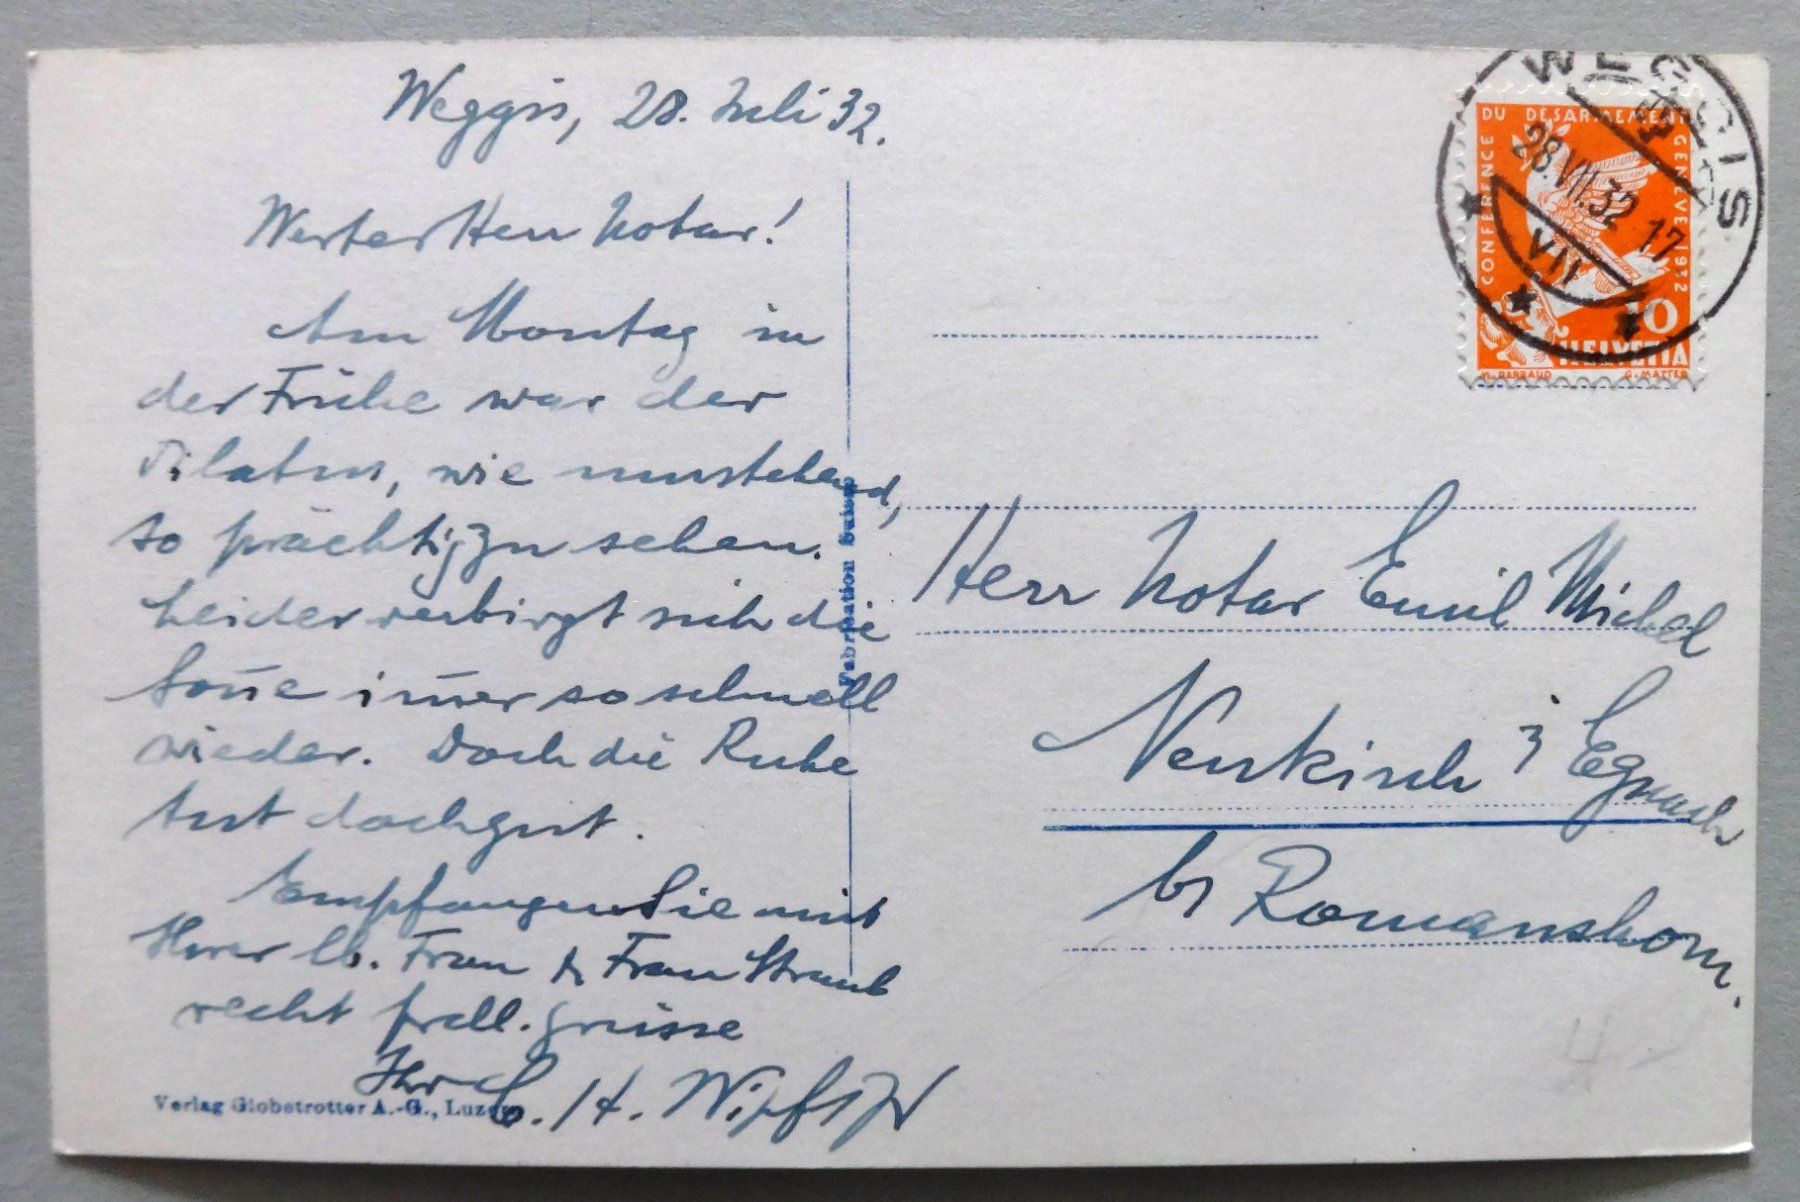 Weggis, 28. Juli 32.
Werter Herr Notar!
Am Montag in
der Frühe war der
Pilatus, wie umstehend,
so prächtig zu sehen.
Leider verbirgt sich die
Soñe im̃er so schnell
wieder. Doch die Ruhe
tut doch gut.
Empfangen Sie mit
Ihrer lb. Frau & Frau Straub
recht frdl. Grüsse
Ihr
Verlag Globetrotter A.-G., Luzern
Fabrication Suisse
WEGGIS
28.VII.32 17
VII
CONFERENCE DU DESARMEMENT GENEVE 1932
10
HELVETIA
M. BARRAUD G. MATTER
Herr Notar Emil Michel
Neukirch z Egnach
b/ Romanshorn.